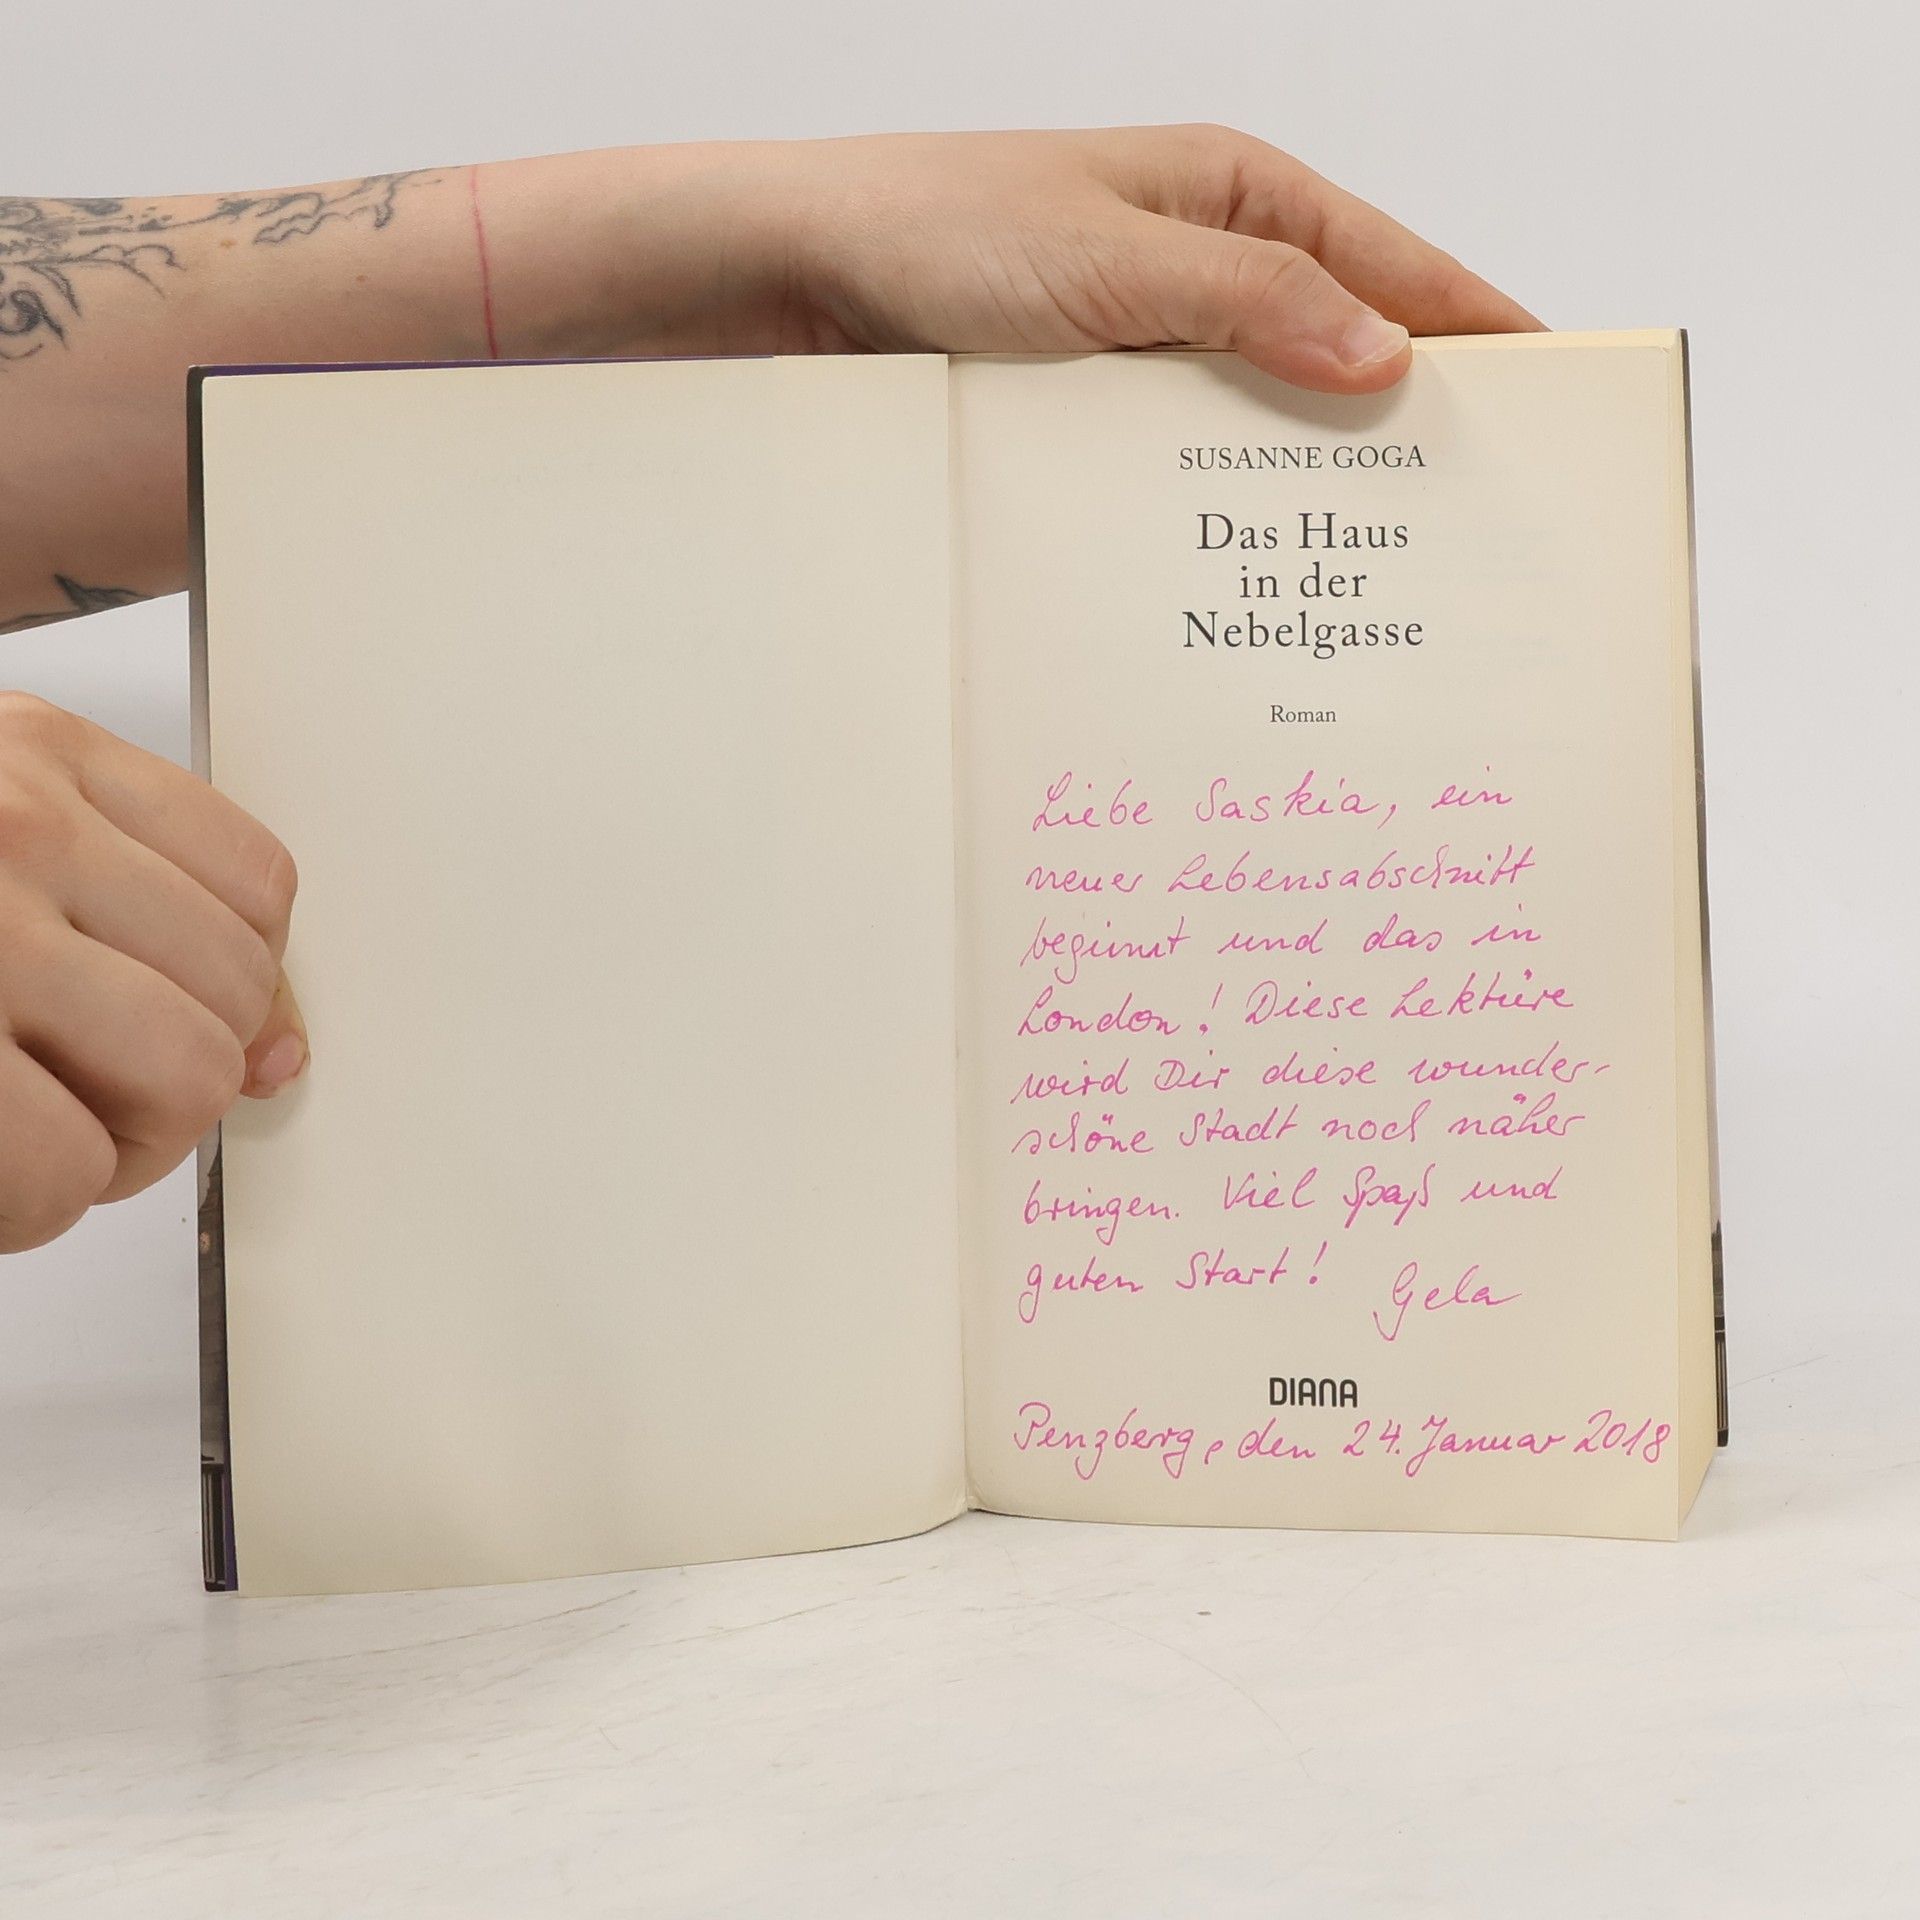 SUSANNE GOGA
Das Haus
in der
Nebelgasse
Roman
Liebe Saskia, ein
neuer Lebensabschnitt
beginnt und das in
London! Diese Lektüre
wird Dir diese wunder-
schöne Stadt noch näher
bringen. Viel Spaß und
guten Start!
Gela
DIANA
Penzberg, den 24. Januar 2018